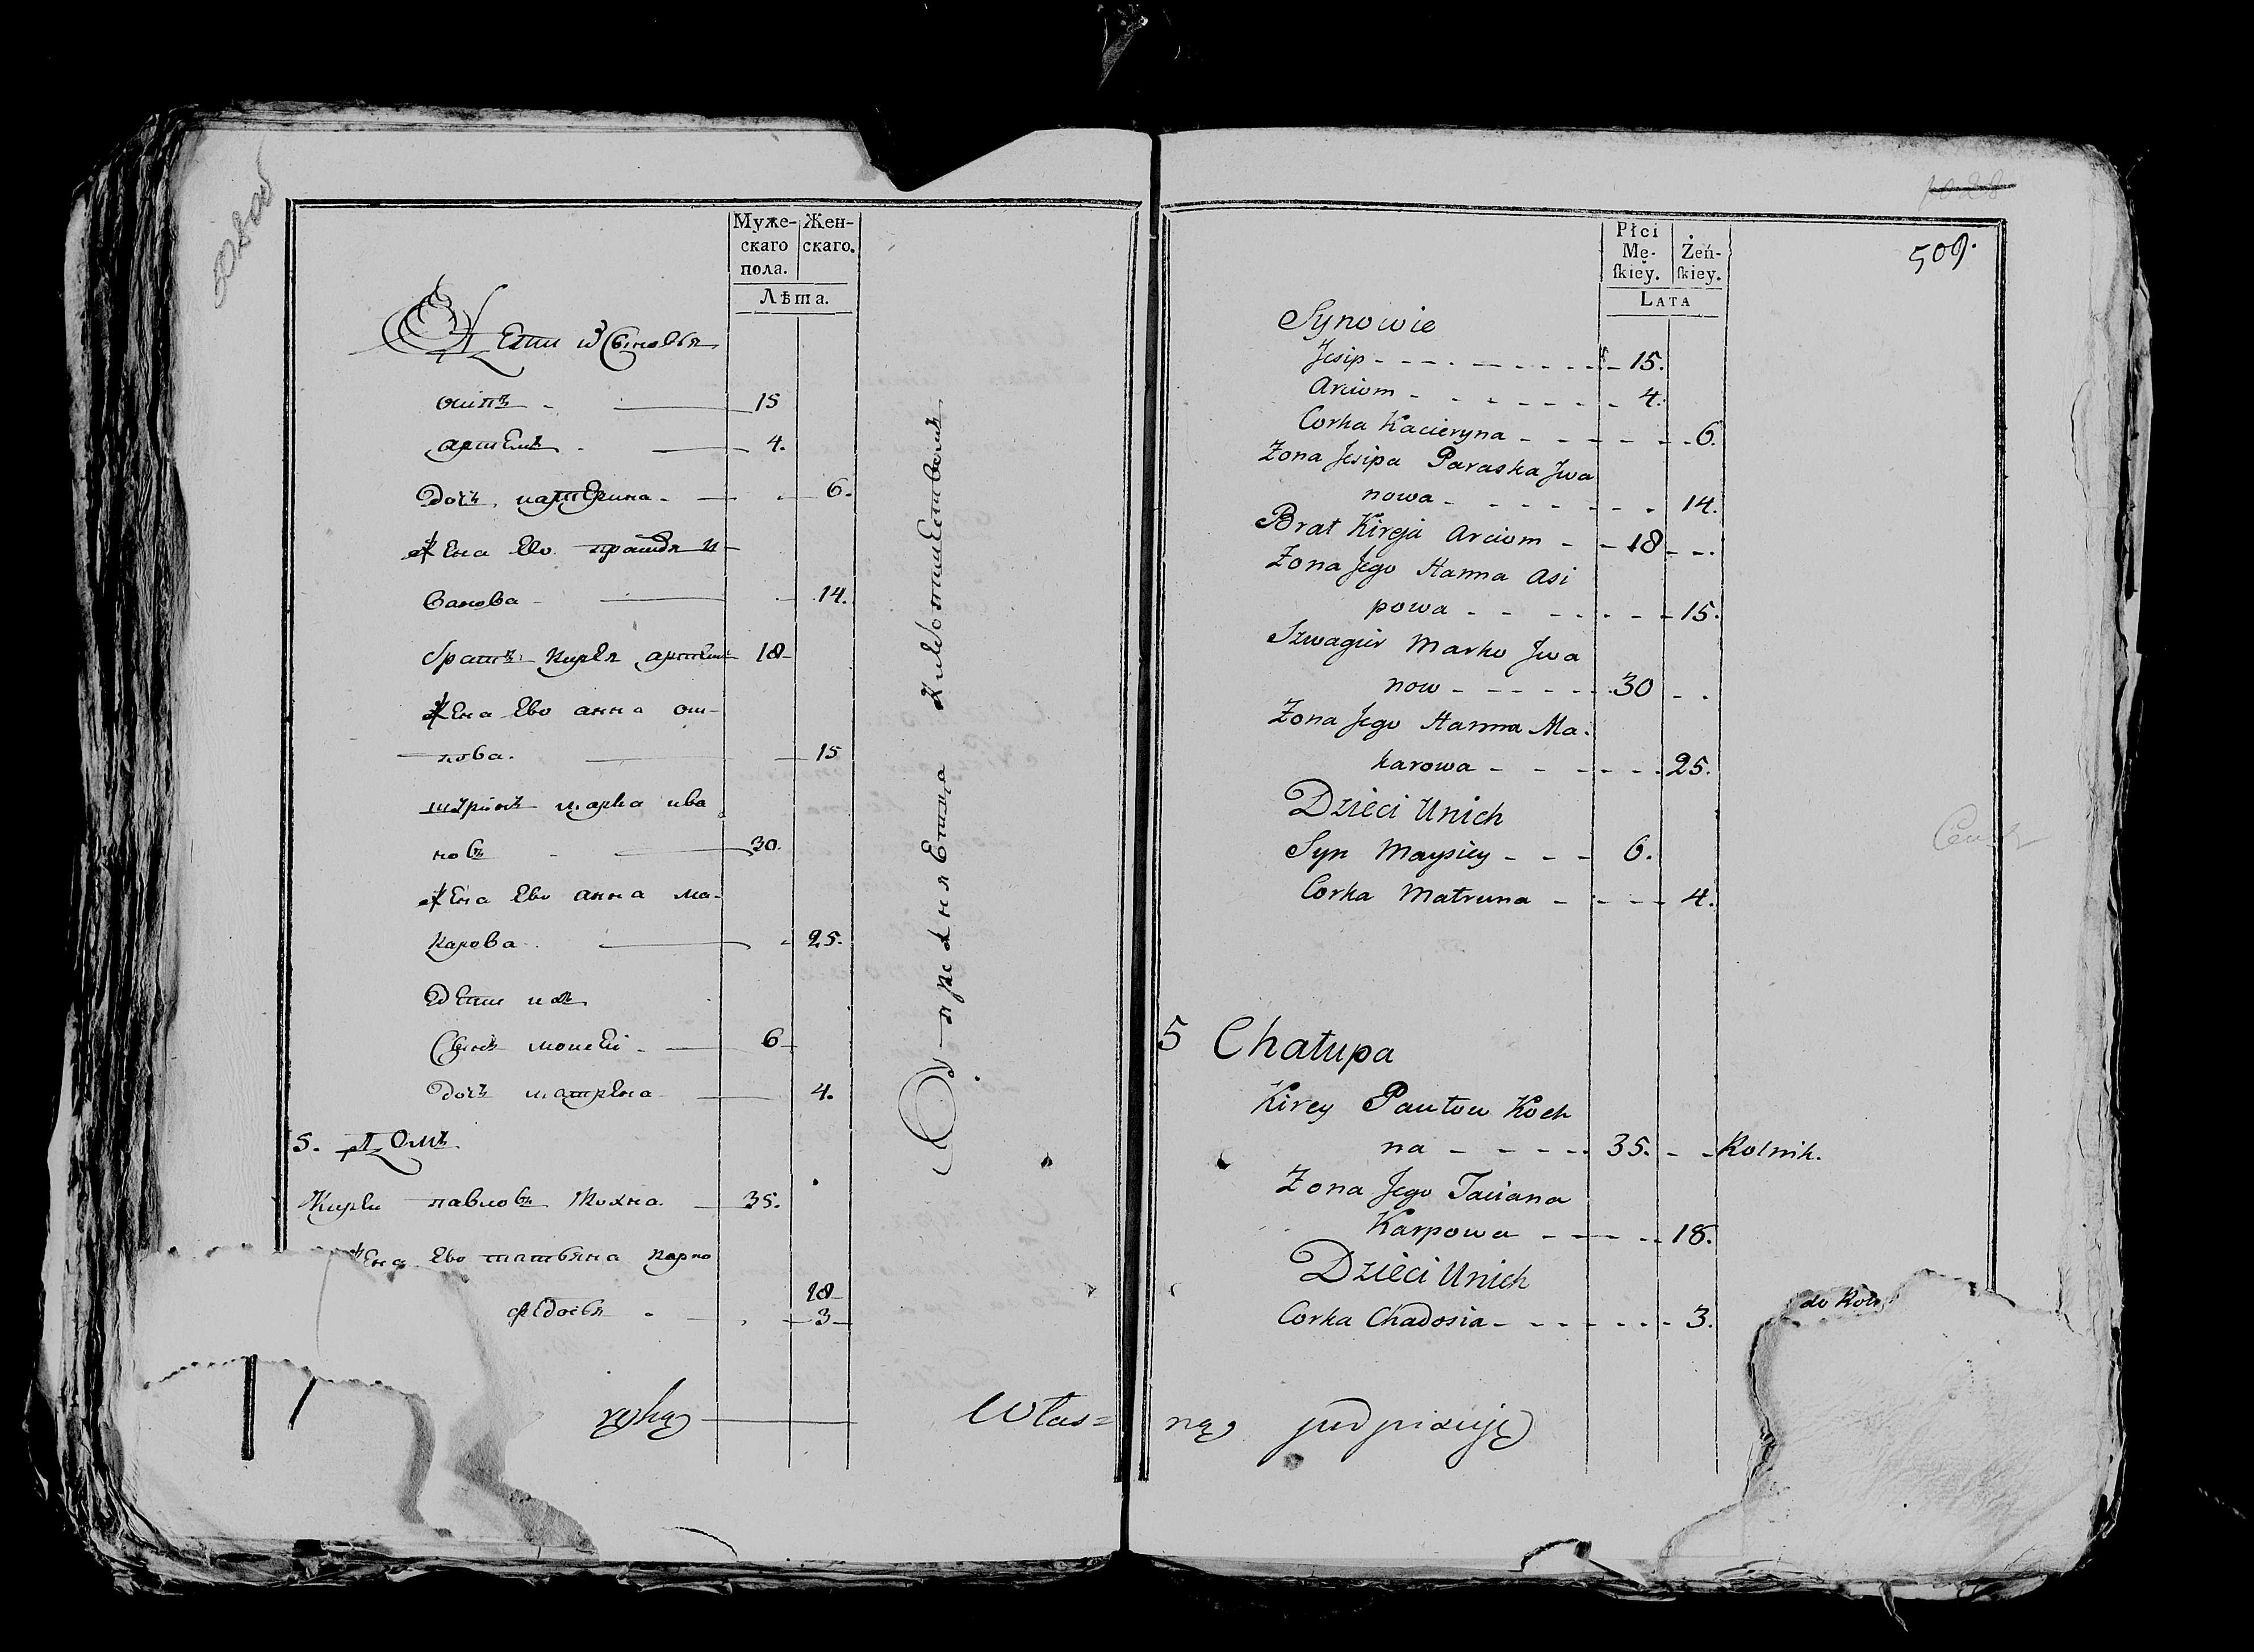 Муже-
скаго
пола.
Жен-
скаго.
Лѣта.
Дети и Сыновья
осипъ - — 15
артемъ - — 4.
Дочь катерина - — 6.
Жена Ево И-
ванова - — 14.
братъ кирея артемъ 18
Жена Ево анна оси-
пова. — 15
шуринъ марка ива
новъ - — 30.
Жена Ево анна ма-
карова - — 25.
Дети их
Сынъ мойсей - — 6
Дочь матрена — 4.
5. Домъ
Кирей павловъ Кохна. — 35.
Жена Ево татьяна карпо
18
федосья - — 3
ręką — Włas=
Płci
Mę-
skiey.
Żeń-
skiey.
LATA
509.
Synowie
Jesip - - - - 15.
Arciom - - - - 4.
Corka Kacieryna - - - - 6.
Zona Jesipa Paraska Jwa
nowa - - - - 14.
Brat Kireja Arciom - - 18 - -.
Zona Jego Hanna Asi
powa - - - - 15.
Szwagier Marko Jwa
now - - - - 30 - -
Zona Jego Hanna Ma.
karowa - - - - 25.
Dzieci Unich
Syn Maysiey - - - 6.
Corka Matruna - - - - 4.
5 Chałupa
Kirey Pawłow Koch
na - - - - 35. - - Rolnik.
Zona Jego Taciana
Karpowa - - - - 18.
Dzieci Unich
Corka Chadosia - - - - 3.
do
ną podpisuję